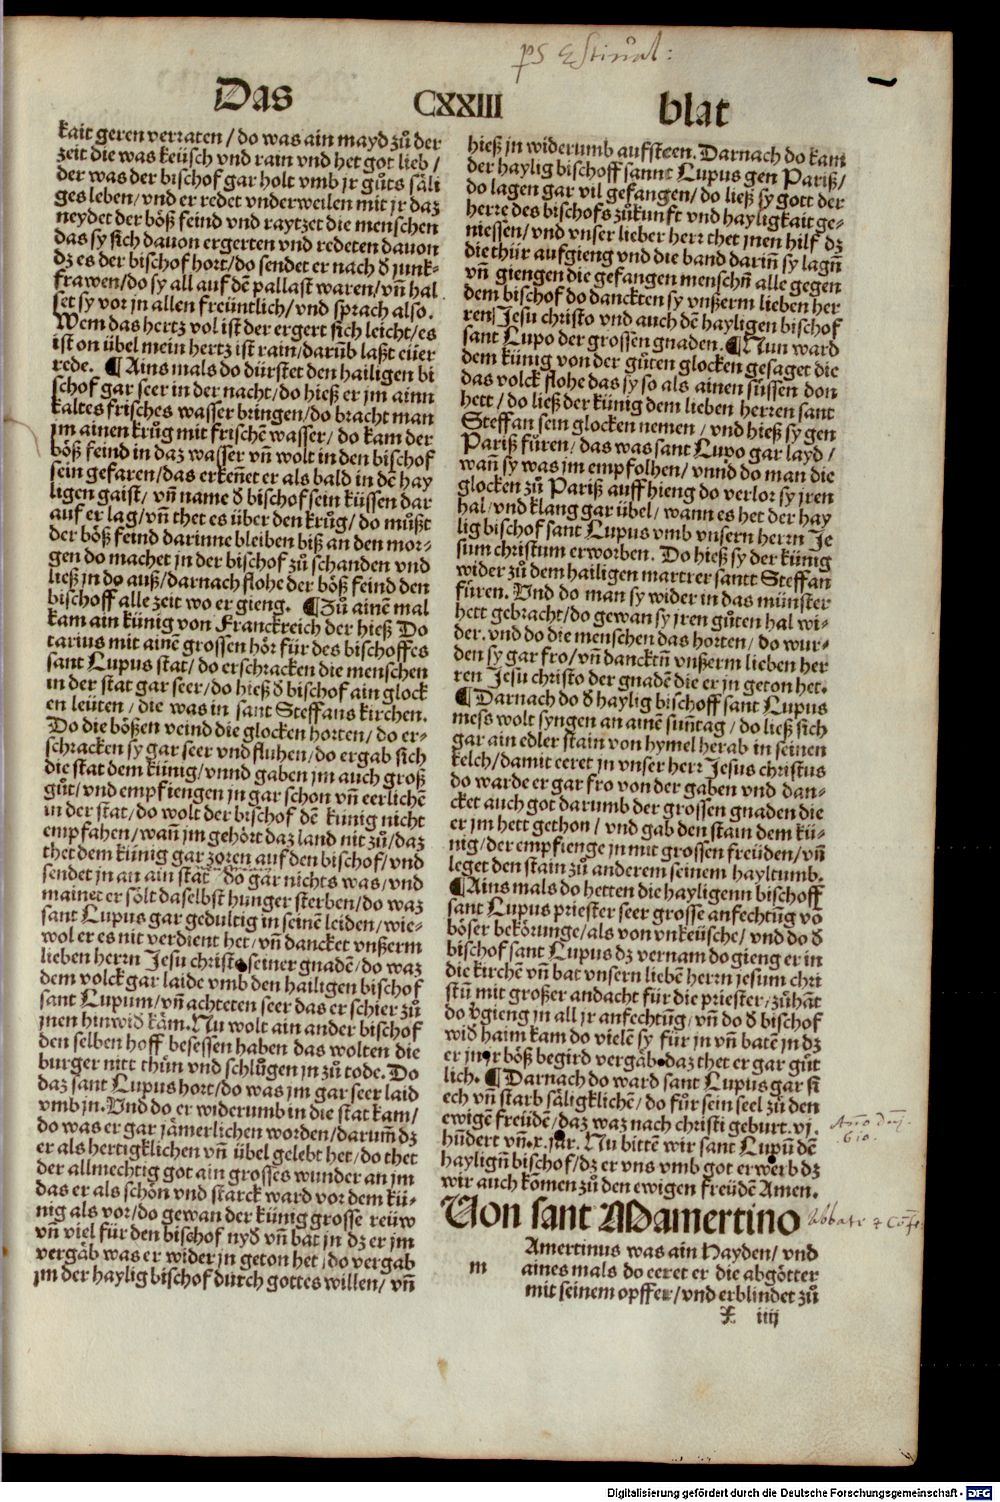 ps Estiual:
Das CXXIII blat
kait geren verraten / do was ain mayd zů der
zeit die was keüsch vnd rain vnd het got lieb /
der was der bischof gar holt vmb jr gůts säli
ges leben / vnd er redet vnderweilen mit jr daz
neydet der böß feind vnd raytzet die menschen
das sy sich dauon ergerten vnd redeten dauon
dz es der bischof hort / do sendet er nach d̕ junk-
frawen / do sy all auf dē pallast waren / vñ hal
set sy vor jn allen freüntlich / vnd sprach also.
Wem das hertz vol ist der ergert sich leicht / es
ist on übel mein hertz ist rain / darūb laßt eüer
rede. ¶ Ains mals do dürstet den hailigen bi
schof gar seer in der nacht / do hieß er jm ainn
kaltes frisches wasser bringen / do bracht man
jm ainen krůg mit frischē wasser / do kam der
böß feind in daz wasser vñ wolt in den bischof
sein gefaren / das erkeñet er als bald in dē hay
ligen gaist / vñ name d̕ bischof sein küssen dar
auf er lag / vñ thet es über den krůg / do můßt
der böß feind darinne bleiben biß an den mor-
gen do machet jn der bischof zů schanden vnd
ließ jn do auß / darnach flohe der böß feind den
bischoff alle zeit wo er gieng. ¶ Zů ainē mal
kam ain künig von Franckreich der hieß Do
tarius mit ainē grossen hör für des bischoffes
sant Lupus stat / do erschracken die menschen
in der stat gar seer / do hieß d̕ bischof ain glock
en leüten / die was in sant Steffans kirchen.
Do die bößen veind die glocken horten / do er-
schracken sy gar seer vnd fluhen / do ergab sich
die stat dem künig / vnnd gaben jm auch groß
gůt / vnd empfiengen jn gar schon vñ eerlichē
in der stat / do wolt der bischof dē künig nicht
empfahen / wañ jm gehört daz land nit zů / daz
thet dem künig gar zoren auf den bischof / vnd
sendet jn an ain stat do gar nichts was / vnd
mainet er sölt daselbst hunger sterben / do waz
sant Lupus gar gedultig in seinē leiden / wie-
wol er es nit verdient het / vñ dancket vnßerm
lieben herrn Jesu christo seiner gnadē / do waz
dem volck gar laide vmb den hailigen bischof
sant Lupum / vñ achteten seer das er schier zů
jnen hinwid̕ käm. Nu wolt ain ander bischof
den selben hoff besessen haben das wolten die
burger nitt thůn vnd schlůgen jn zů tode. Do
daz sant Lupus hort / do was jm gar seer laid
vmb jn. Vnd do er widerumb in die stat kam /
do was er gar jämerlichen worden / darum̄ dz
er als hertigklichen vñ übel gelebt het / do thet
der allmechtig got ain grosses wunder an jm
das er als schön vnd starck ward vor dem kü-
nig als vor / do gewan der künig grosse reüw
vñ viel für den bischof nyd̕ vñ bat jn dz er jm
vergäb was er wider jn geton het / do vergab
jm der haylig bischof durch gottes willen / vñ
hieß jn widerumb aufsteen. Darnach do kam
der haylig bischoff sannt Lupus gen Pariß /
do lagen gar vil gefangen / do ließ sy gott der
herre des bischofs zůkunft vnd hayligkait ge-
niessen / vnd vnser lieber herr thet jnen hilf dz
die thür aufgieng vnd die band dariñ sy lagñ
vñ giengen die gefangen menschñ alle gegen
dem bischof do danckten sy vnßerm lieben her
ren Jesu christo vnd auch dē hayligen bischof
sant Lupo der grossen gnaden. ¶ Nun ward
dem künig von der gůten glocken gesaget die
das volck flohe das sy so als ainen süssen don
hett / do ließ der künig dem lieben herren sant
Steffan sein glocken nemen / vnd hieß sy gen
Pariß fůren / das was sant Lupo gar layd /
wañ sy was jm empfolhen / vnnd do man die
glocken zů Pariß auffhieng do verlor sy jren
hal / vnd klang gar übel / wann es het der hay
lig bischof sant Lupus vmb vnsern herrn Je
sum christum erworben. Do hieß sy der künig
wider zů dem hailigen martrer santt Steffan
fůren. Vnd do man sy wider in das münster
hett gebracht / do gewan sy jren gůten hal wi-
der. vnd do die menschen das horten / do wur-
den sy gar fro / vñ dancktñ vnßerm lieben her
ren Jesu christo der gnadē die er jn geton het.
¶ Darnach do d̕ haylig bischoff sant Lupus
mess wolt syngen an ainē suñtag / do ließ sich
gar ain edler stain von hymel herab in seinen
kelch / damit eeret jn vnser herr Jesus christus
do warde er gar fro von der gaben vnd dan-
cket auch got darumb der grossen gnaden die
er jm hett gethon / vnd gab den stain dem kü-
nig / der empfienge jn mit grossen freüden / vñ
leget den stain zů anderem seinem hayltumb.
¶ Ains mals do hetten die hayligenn bischoff
sant Lupus priester seer grosse anfechtūg vō
böser bekörunge / als von vnkeüsche / vnd do d̕
bischof sant Lupus dz vernam do gieng er in
die kirchē vñ bat vnsern liebē herrn jesum chri
stū mit großer andacht für die priester / zůhāt
do v̕gieng in all jr anfechtūg / vñ do d̕ bischof
wid̕ haim kam do vielē sy für jn vñ batē jn dz
er jn jr böß begird vergäb. daz thet er gar gůt
lich. ¶ Darnach do ward sant Lupus gar si
ech vñ starb säligklichē / do fůr sein seel zů den
ewigē freüdē / daz waz nach christi geburt. vj.
hūdert vñ .x. jar. Nu bittē wir sant Lupū dē
hayligñ bischof / dz er vns vmb got erwerb dz
wir auch kōmen zů den ewigen freüdē Amen.
Anno Dnj.
610.
Von sant Mamertino
Abbate & Cōf.
m Amertinus was ain Hayden / vnd
aines mals do eeret er die abgötter
mit seinem opffer / vnd erblindet zů
X iiij
Digitalisierung gefördert durch die Deutsche Forschungsgemeinschaft - DFG